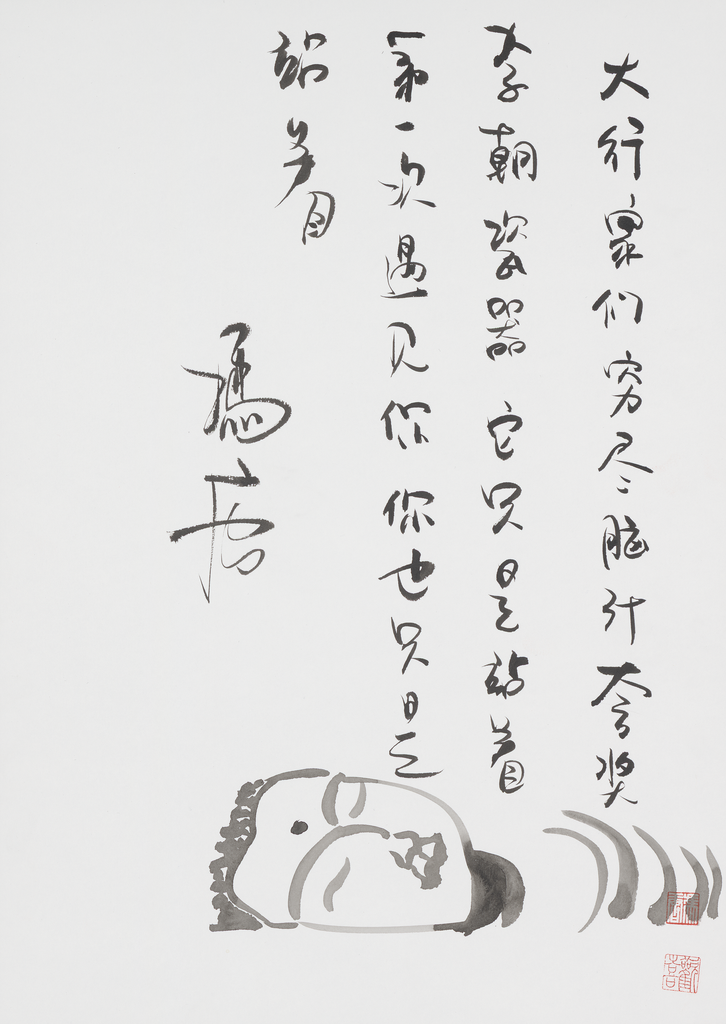 大行家们穷尽脑汁夸奖
李朝瓷器它只是站着
第一次遇见你你也只是
站着